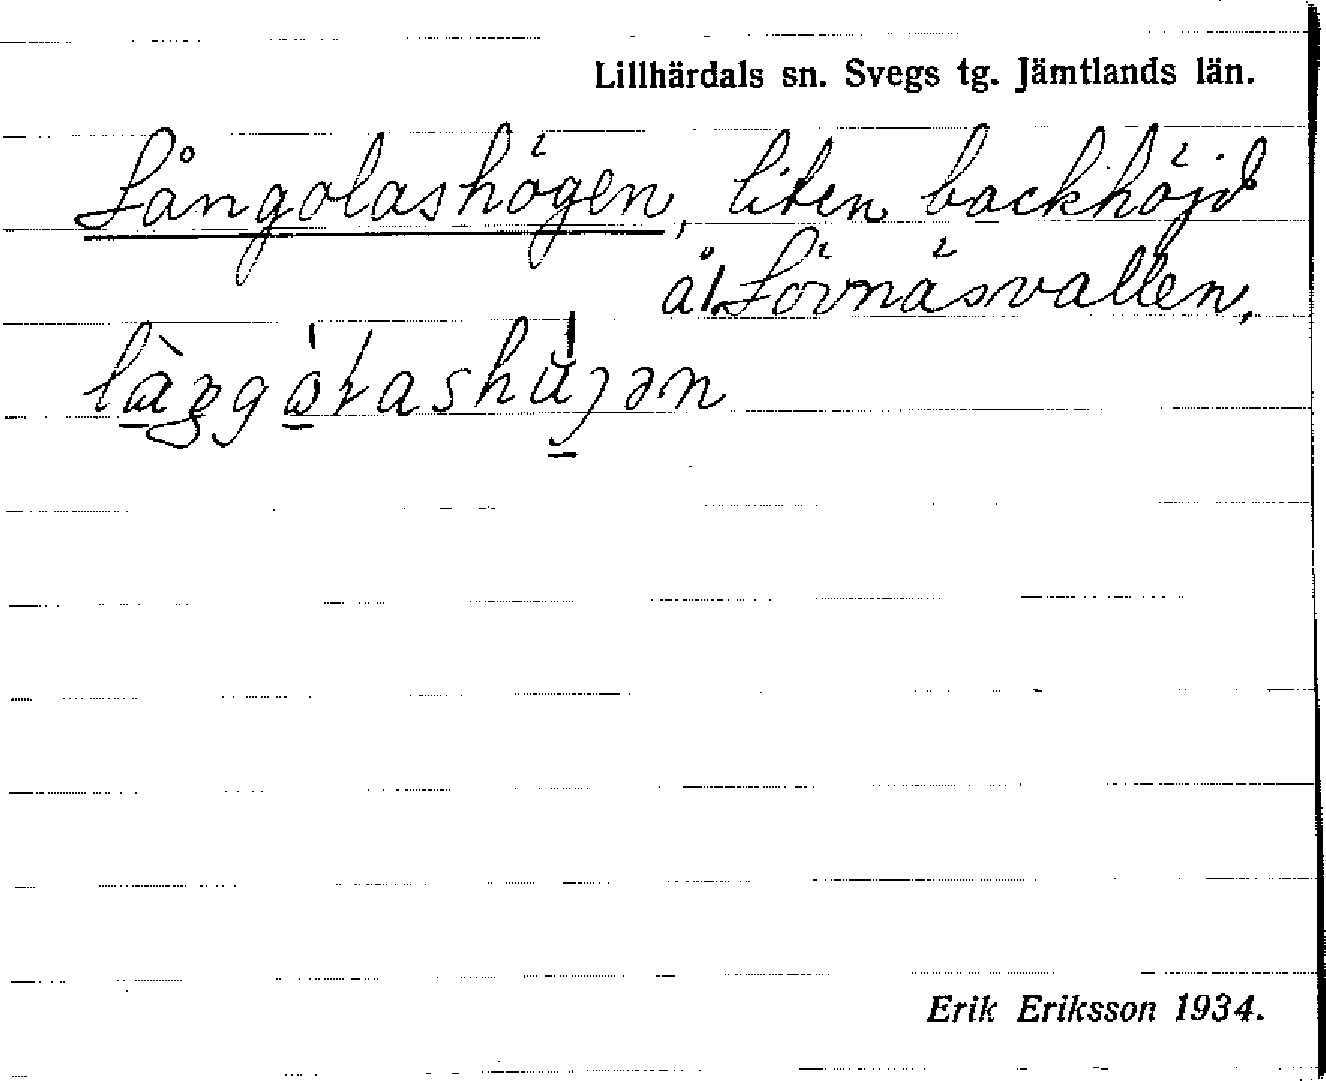 Lillhärdals sn. Svegs tg. Jämtlands län.
Långolashögen, liten backhöjd
å Lövnäsvallen.
Erik Eriksson 1934.